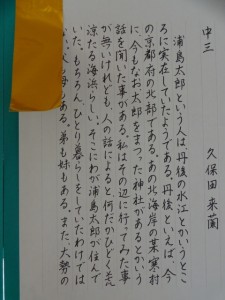 中三 久保田 来蘭
浦島太郎という人は丹後の水江とかいうとこ
ろに実在していたようである。丹後といえば、今
の京都府の北部である。あの北海岸の某寒村
に、今もなお太郎をまつった神社があるとかいう
話を聞いた事がある。私はその辺に行ってみた事
が無いけれども、人の話によると何だかひどく荒
涼たる海浜らしい。そこにわが浦島太郎が住んで
いた。もちろん、ひとり暮らしをしていたわけでは
ない。父も母もある。弟も妹もある。また、大勢の